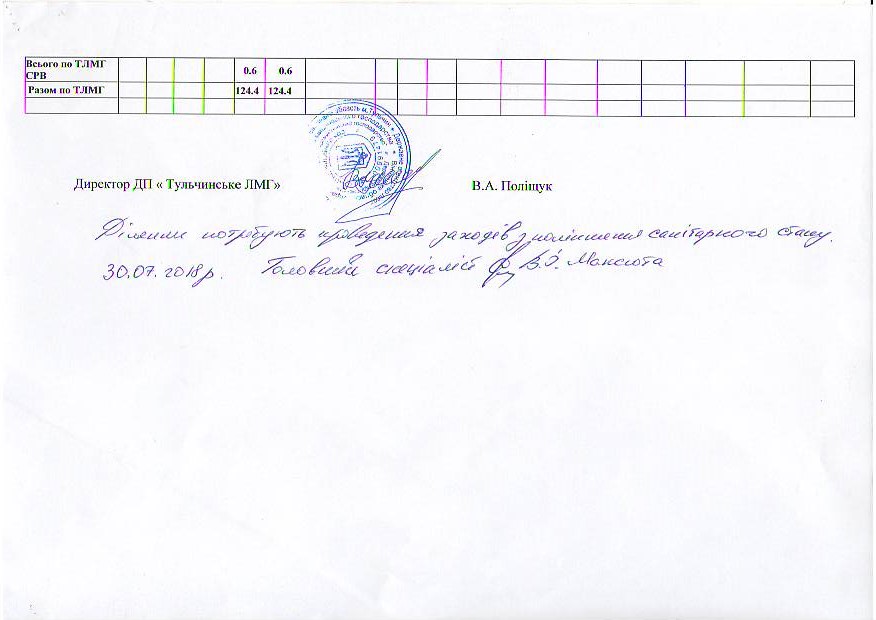 Всього по ТЛМГ
СРВ 0.6 0.6
Разом по ТЛМГ 124.4 124.4
Директор ДП « Тульчинське ЛМГ» В.А. Поліщук
Ділянки потребують проведення заходів з поліпшення санітарного стану.
30.07.2018р. Головний спеціаліст В.О. Мансюта